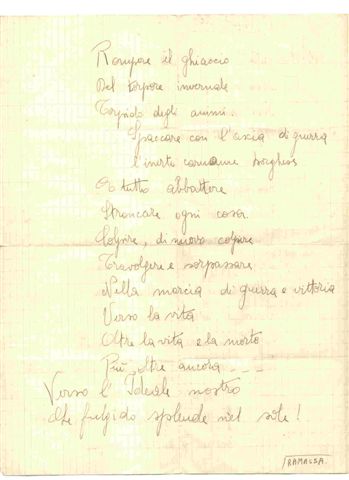 Rompere il ghiaccio
Del torpore invernale
Torpido degli animi.
Spaccare con l'ascia di guerra
l'inerte carname borghese
E tutto abbattere
Stroncare ogni cosa
Colpire, di nuovo colpire
Travolgere e sorpassare
Nella marcia di guerra e vittoria
Verso la vita
Oltre la vita e la morte
Più oltre ancora ---
Verso l'Ideale nostro
che fulgido splende nel sole!
RAMALSA.